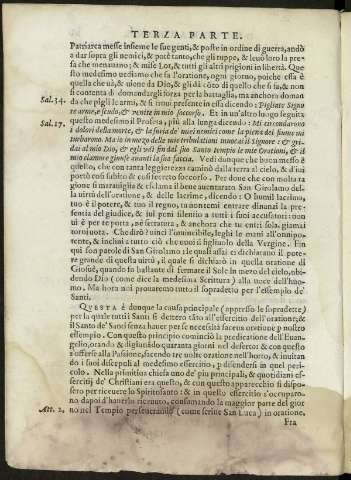 TERZA PARTE.
Patriarca messe insieme le sue genti, & poste in ordine di guerra, andò
a dar sopra gli nemici, & poté tanto, che gli ruppe, & levò loro la pre-
sa che menavano; & mise Lot, & tutti gli altri prigioni in libertà. Que
sto medesimo vediamo che fa l'oratione, ogni giorno, poiche essa è
quella che và, & unione da Dio, & gli dà cōto di quello che si fa, & non
si contenta di domandargli forza per la battaglia, ma anchora doman-
Sal.34. da che pigli le armi, & si truoi presente in essa dicendo: Pigliate Signo
re arme, & scudo, & venite in mio soccorso. Et in un'altro luogo seguita
Sal.17. questo medesimo il Profeta, più alla lunga dicendo: Mi circondarono
i dolori della morte, & la furia de' miei nemici come la piena dei fiumi mi
turbarono. Ma io in mezo delle mie tribulationi invocai il Signore: & gri-
dai al mio Dio, & egli udì fin dal suo Santo tempio le mie Orationi, & il
mio clamore giunse avanti la sua faccia. Vedi dunque che buon messo è
questo, che con tanta leggierezza camino dalla terra al cielo, & di lì
portò così subito & così secreto soccorso. Per donde con molta ra
gione si maraviglia & esclama il bene aventurato San Girolamo del-
la virtù dell'oratione, & delle lacrime, dicendo: O humil lacrima,
tuo è il potere, & tuo il regno, tu non temi entrare dinanzi la pre-
senza del giudice, & tu poni silentio a tutti i suoi accusatori: non
ui è per te porta, né serratura, & anchora che tu entri sola, giamai
torni vota. Che dirò? vinci l'innuincibile, leghi le mani all'onnipo-
tente, & inclini a tutto ciò che vuoi il figliuolo della Vergine. Fin
qui son parole di San Girolamo: le quali assai ci dichiarano il pote-
re grande di questa virtù, il quale si dichiarò in quella oratione di
Giosuè, quando fu bastante di fermare il Sole in mezo del cielo, obbi-
dendo Dio (come dice la medesima Scrittura) alla voce dell'huo-
mo. Ma hora noi provaremo tutto il sopradetto per l'essempio de'
Santi.
QUESTA è dunque la causa principale (appresso le sopradette)
per la quale tutti i Santi si dettero tāto all'essercitio dell'oratione; &
il Santo de' Santi senza haver per se necessità faceva oratione p̱ nostro
essempio. Con questo principio cominciò la predicatione dell'Euan-
gelio, orando & digiunādo quaranta giorni nel deserto: & con questo
s'offerse alla Passione, facendo tre volte oratione nell'horto, & invitan-
do i suoi discepoli al medesimo essercitio, p̱ difendersi in quel peri-
colo. Nella primitiva chiesa uno de' piu principali, & quotidiani es-
sercitij de' Christiani era questo, & con questo apparecchio si dispo-
sero per ricevere lo Spirito santo: & in questo essercitio s'occuparo-
no dapoi d'haverlo ricevuto, consumando la maggior parte del gior
Att. 2. no nel Tempio perseverando (come scrive San Luca) in oratione,
Fra